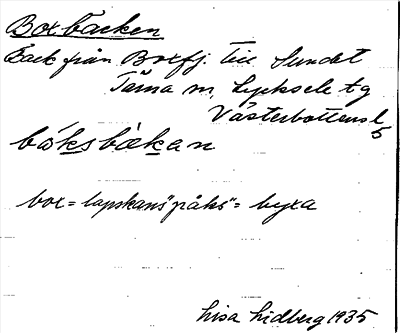 Boxbäcken
Bäck från Boxfj. till Sundet
Tärna sn, Lycksele tg
Västerbottens l
5
bòksbäkan
box = lapskans "påks" = byxa
Lisa Lidberg 1935